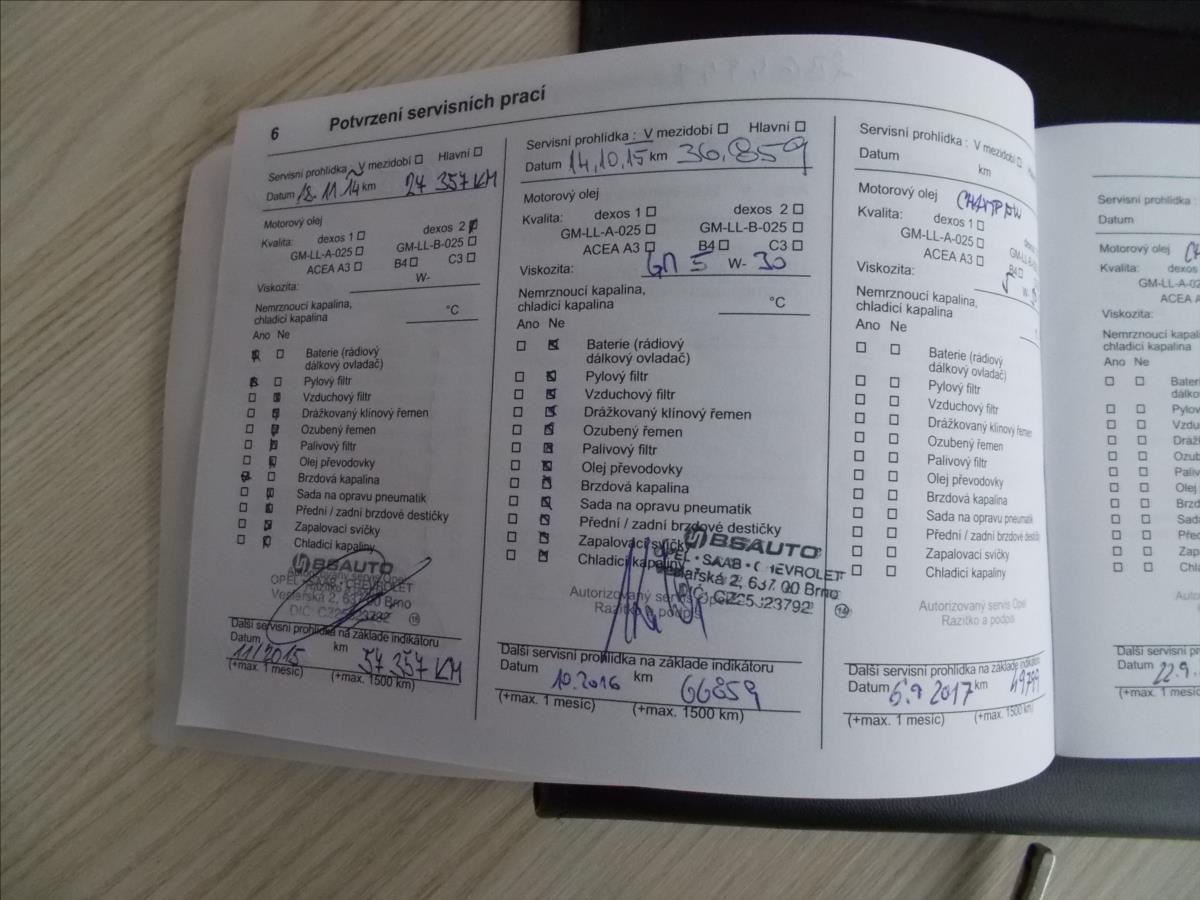 6 Potvrzení servisních prací
Servisní prohlídka : V mezidobí ☐ Hlavní ☐
Datum 18.11.14 km 27 357 KM
Motorový olej
Kvalita: dexos 1 ☐ dexos 2 ☒
GM-LL-A-025 ☐ GM-LL-B-025 ☐
ACEA A3 ☐ B4 ☐ C3 ☐
Viskozita: W-
Nemrznoucí kapalina,
chladicí kapalina °C
Ano Ne
☒ ☐ Baterie (rádiový
dálkový ovladač)
☒ ☐ Pylový filtr
☐ ☒ Vzduchový filtr
☐ ☒ Drážkovaný klínový řemen
☐ ☒ Ozubený řemen
☐ ☒ Palivový filtr
☐ ☒ Olej převodovky
☒ ☐ Brzdová kapalina
☐ ☒ Sada na opravu pneumatik
☐ ☒ Přední / zadní brzdové destičky
☐ ☒ Zapalovací svíčky
☐ ☒ Chladicí kapaliny
BSAUTO
OPEL • SAAB • CHEVROLET
Veslařská 2, 637 00 Brno
DIČ: CZ25523792
Další servisní prohlídka na základe indikátoru
Datum 11/2015 km 57 357 KM
(+max. 1 mesíc) (+max. 1500 km)
Servisní prohlídka : V mezidobí ☐ Hlavní ☐
Datum 14.10.15 km 36.859
Motorový olej
Kvalita: dexos 1 ☐ dexos 2 ☐
GM-LL-A-025 ☐ GM-LL-B-025 ☐
ACEA A3 ☐ B4 ☐ C3 ☐
Viskozita: GM 5 W- 30
Nemrznoucí kapalina,
chladicí kapalina °C
Ano Ne
☐ ☒ Baterie (rádiový
dálkový ovladač)
☐ ☒ Pylový filtr
☐ ☒ Vzduchový filtr
☐ ☒ Drážkovaný klínový řemen
☐ ☒ Ozubený řemen
☐ ☒ Palivový filtr
☐ ☒ Olej převodovky
☐ ☒ Brzdová kapalina
☐ ☒ Sada na opravu pneumatik
☐ ☒ Přední / zadní brzdové destičky
☐ ☒ Zapalovací svíčky
☐ ☒ Chladicí kapaliny
BSAUTO
OPEL • SAAB • CHEVROLET
Veslařská 2, 637 00 Brno
DIČ: CZ25523792 14
Autorizovaný servis Opel
Razítko a podpis
Další servisní prohlídka na základe indikátoru
Datum 10.2016 km 66859
(+max. 1 mesíc) (+max. 1500 km)
Servisní prohlídka : V mezidobí ☐
Datum km
Motorový olej
Kvalita: dexos 1 ☐
GM-LL-A-025 ☐
ACEA A3 ☐ B4 ☐
Viskozita: 5 W-
Nemrznoucí kapalina,
chladicí kapalina
Ano Ne
☐ ☐ Baterie (rádiový
dálkový ovladač)
☐ ☐ Pylový filtr
☐ ☐ Vzduchový filtr
☐ ☐ Drážkovaný klínový řemen
☐ ☐ Ozubený řemen
☐ ☐ Palivový filtr
☐ ☐ Olej převodovky
☐ ☐ Brzdová kapalina
☐ ☐ Sada na opravu pneumatik
☐ ☐ Přední / zadní brzdové destičky
☐ ☐ Zapalovací svíčky
☐ ☐ Chladicí kapaliny
Autorizovaný servis Opel
Razítko a podpis
Další servisní prohlídka na základe indikátoru
Datum 6.9 2017 km 49799
(+max. 1 mesíc) (+max. 1500 km)
Servisní prohlídka :
Datum
Motorový olej
Kvalita: dexos
GM-LL-A-02
ACEA A
Viskozita:
Nemrznoucí kapalina
chladicí kapalina
Ano Ne
Datum 22.9.
(+max. 1 mesíc